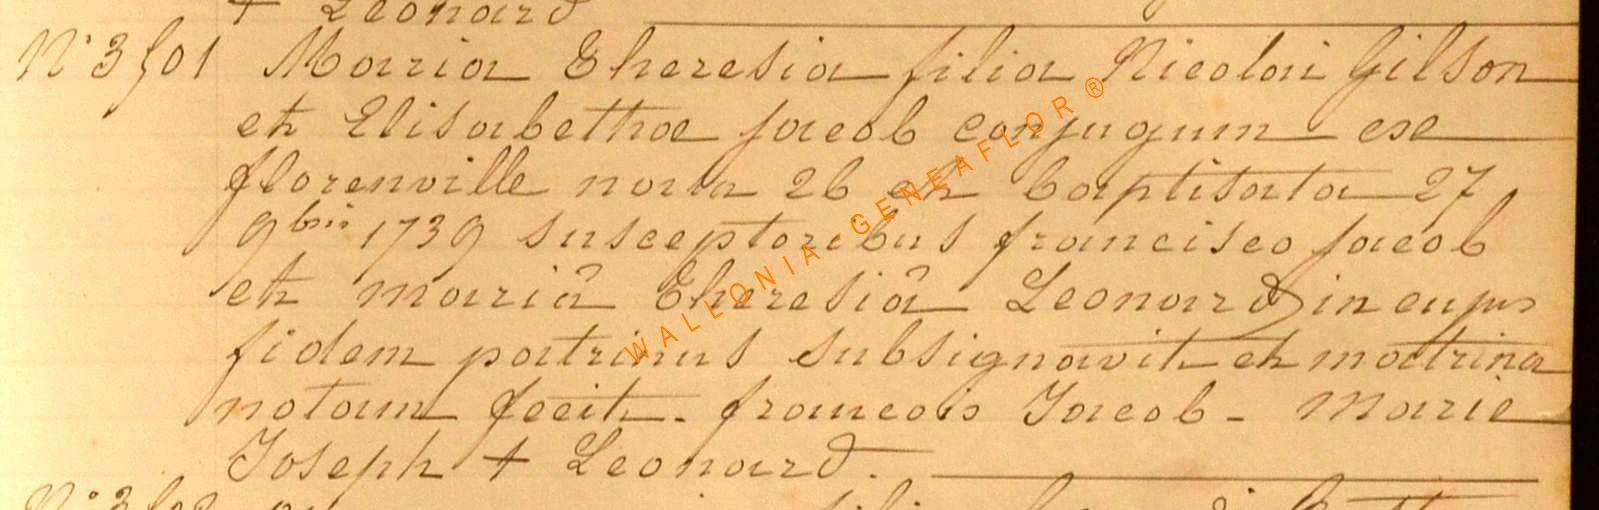 + Leonard
N° 3501 Maria Theresia filia Nicolai Gilson
et Elisabethae jacob conjugum ex
florenville nata 26 et baptisata 27
9bris 1739 susceptoribus francisco jacob
et mariâ Theresiâ Leonard in cujus
fidem patrinus subsignavit et matrina
notam fecit - francois Jacob - Marie
Joseph + Leonard.
N° 3502
WALLONIA-GENEAFLOR ®